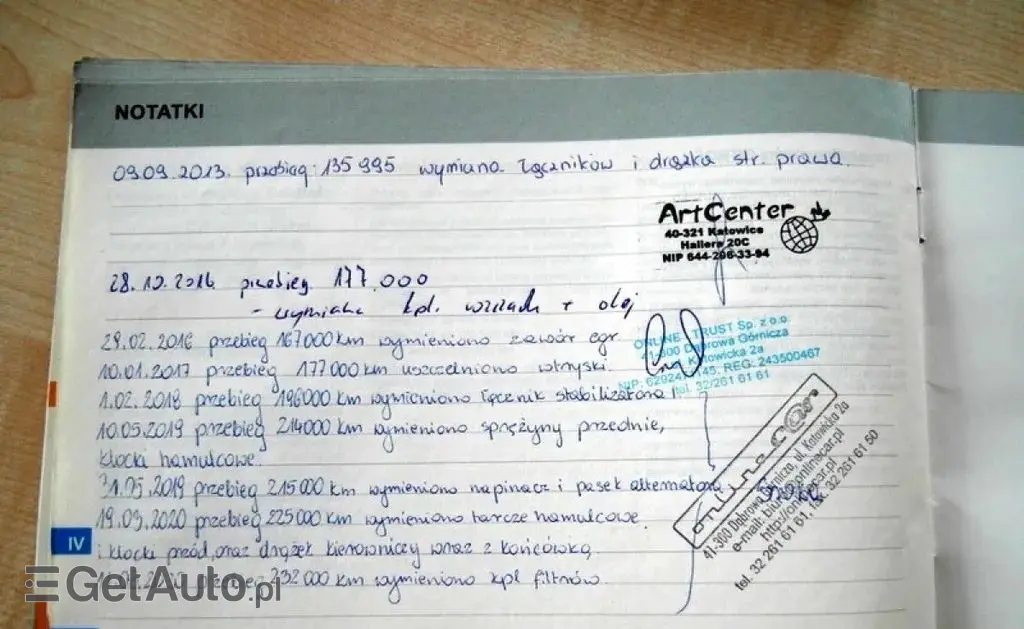 NOTATKI
09.09.2013. przebieg: 135 995 wymiana łączników i drążka str. prawa.
ArtCenter
40-321 Katowice
Hallera 20C
NIP 644-206-33-94
przebieg 177.000
- wymiana kpl. + olej
29.02.2016 przebieg 167000 km wymieniono zawór egr
ONLINE TRUST Sp. z o.o.
41-300 Dąbrowa Górnicza
Katowicka 2a
REG: 243500467
tel. 32/261 61 61
10.01.2017 przebieg 177000 km uszczelniono wtryski.
1.02.2018 przebieg 196000 km wymieniono łącznik stabilizatora
10.05.2019 przebieg 214000 km wymieniono sprężyny przednie,
klocki hamulcowe.
31.05.2019 przebieg 215000 km wymieniono napinacz i pasek alternatora
19.09.2020 przebieg 225000 km wymieniono tarcze hamulcowe.
i klocki przód, oraz drążek kierowniczy wraz z końcówką
przebieg 232000 km wymieniono kpl filtrów.
onlinecar
41-300 Dąbrowa Górnicza, ul. Katowicka 2a
tel. 32 261 61 61, fax 32 261 61 50
IV
GetAuto.pl